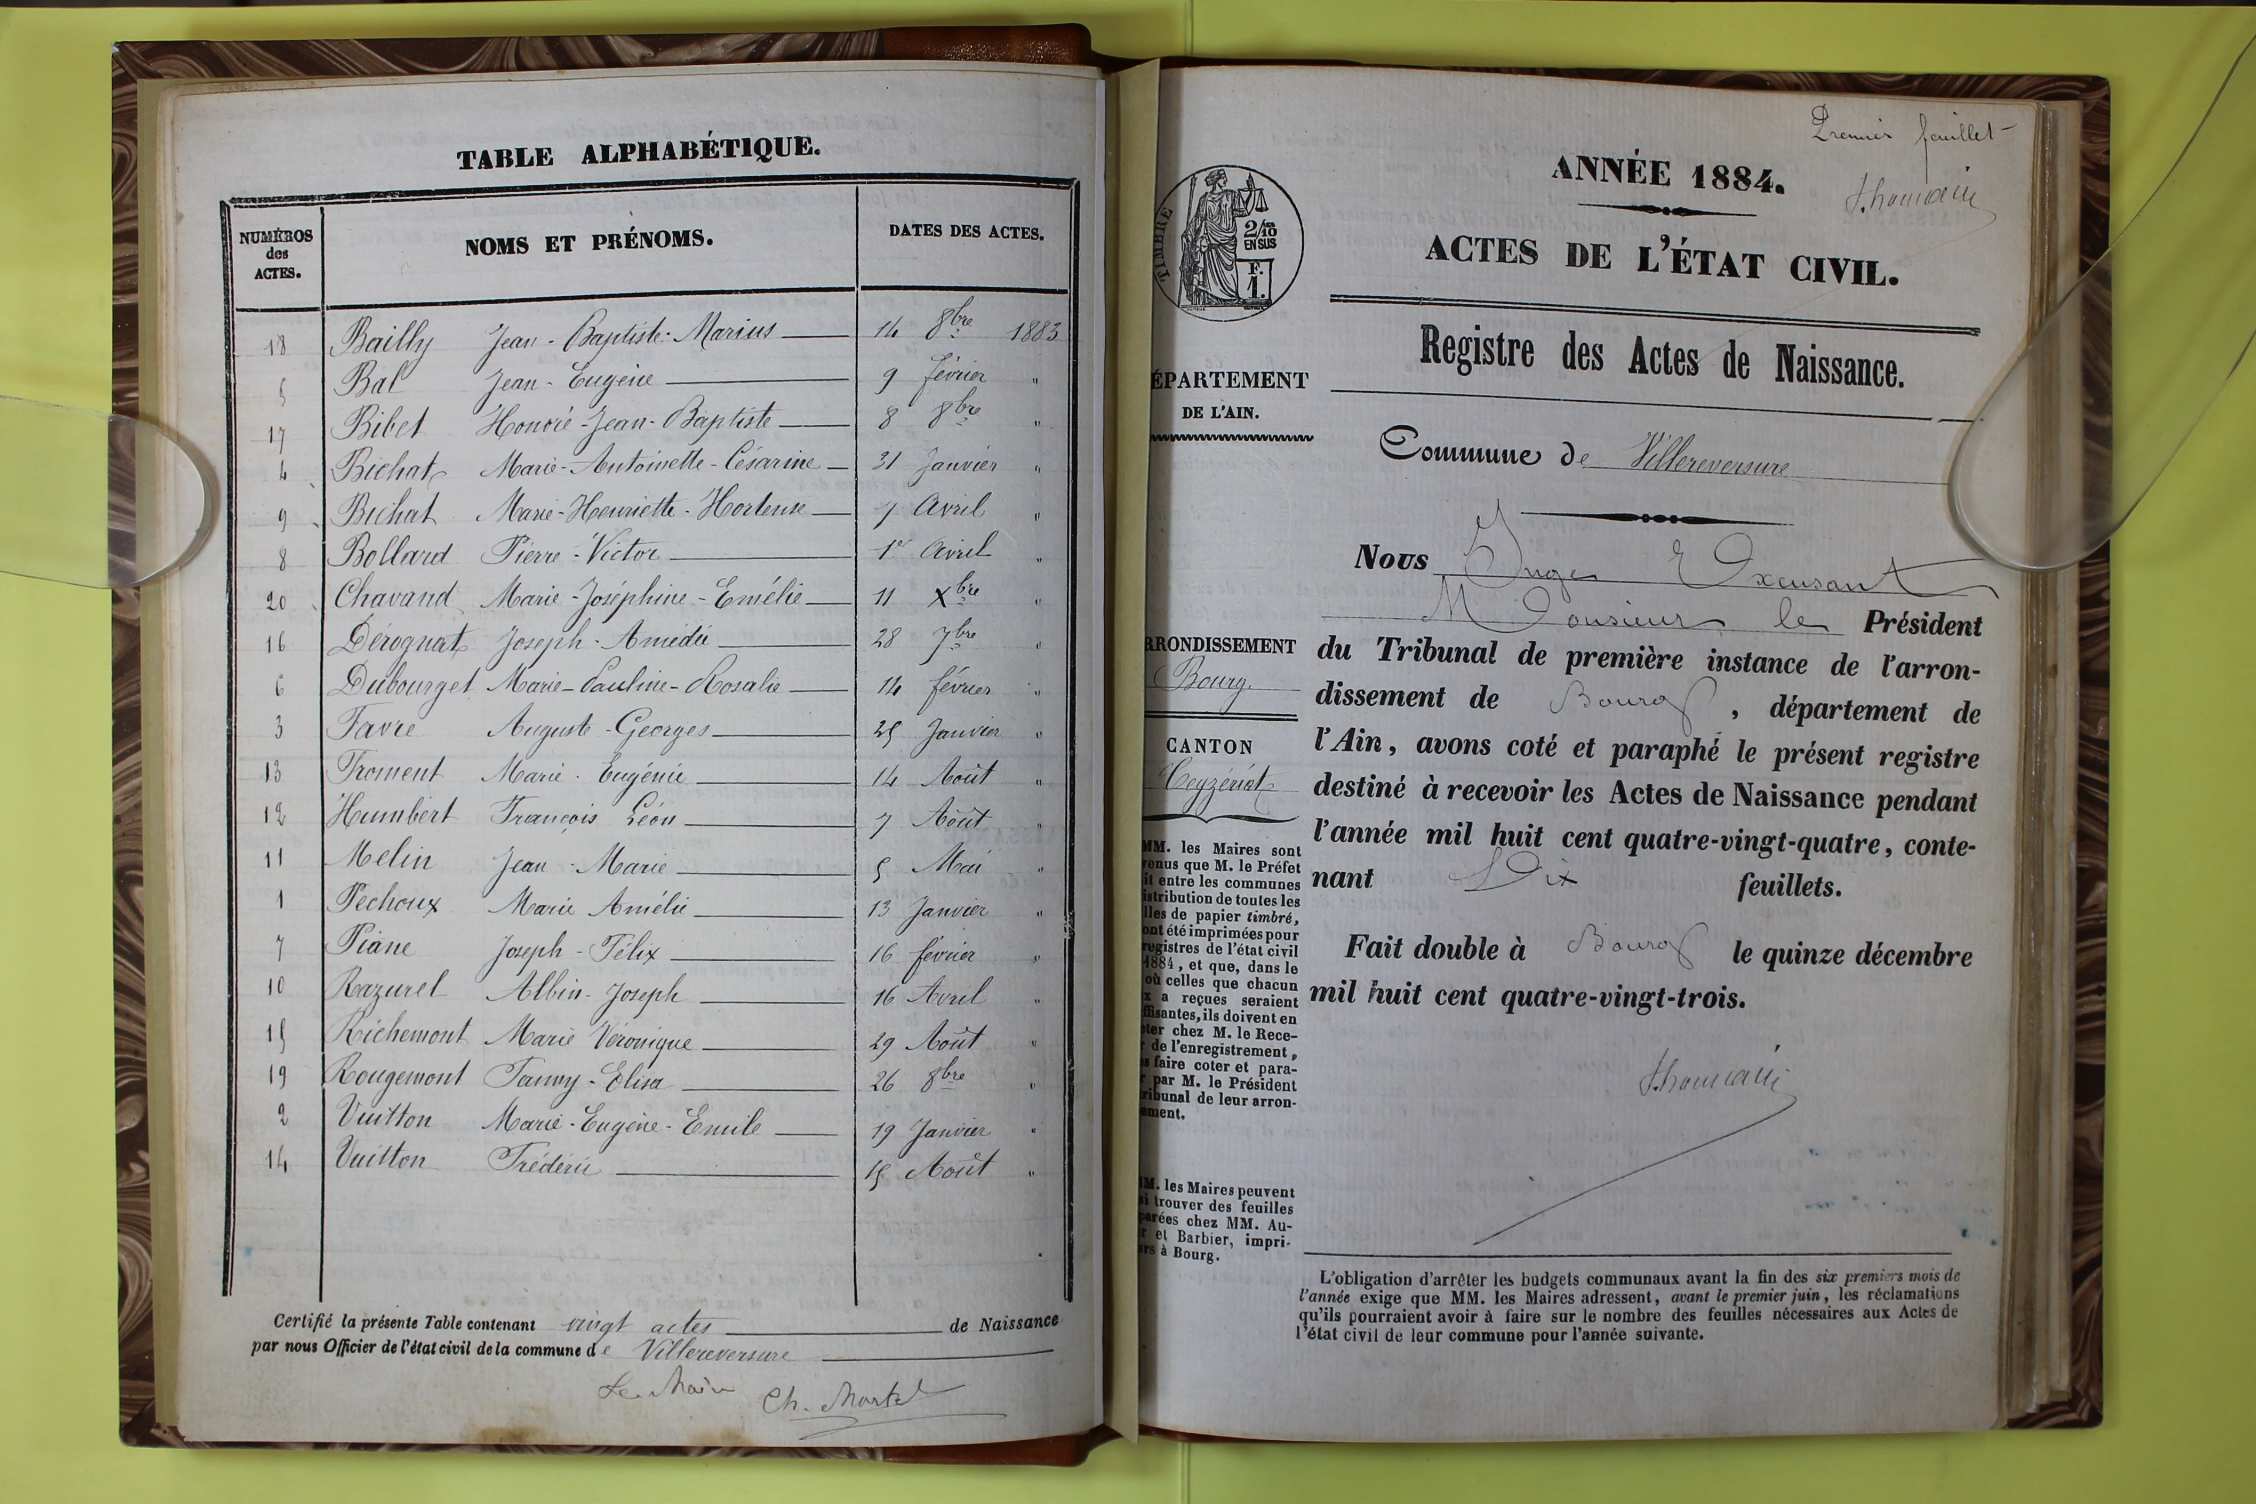 TABLE ALPHABÉTIQUE.
NUMÉROS des ACTES. NOMS ET PRÉNOMS. DATES DES ACTES.
18 Bailly Jean-Baptiste-Marius 14 8bre 1883
5 Bal Jean-Eugène 9 février "
17 Bibet Honoré-Jean-Baptiste 8 8bre "
4 Bichat Marie-Antoinette-Césarine 31 Janvier "
9 Bichat Marie-Henriette-Hortense 7 Avril "
8 Bollard Pierre-Victor 1er Avril "
20 Chavand Marie-Joséphine-Emélie 11 Xbre "
16 Dérognat Joseph-Amédée 28 7bre "
6 Dubourget Marie-Pauline-Rosalie 14 février "
3 Favre Auguste-Georges 25 Janvier "
13 Froment Marie-Eugénie 14 Août "
12 Humbert François Léon 7 Août "
11 Melin Jean-Marie 5 Mai "
1 Pechoux Marie Amélie 13 Janvier "
7 Piane Joseph-Félix 16 février "
10 Razurel Albin-Joseph 16 Avril "
15 Richemont Marie Véronique 29 Août "
19 Rougemont Fanny-Elisa 26 8bre "
2 Vuitton Marie-Eugène-Emile 19 Janvier "
14 Vuitton Frédéric 15 Août "
Certifié la présente Table contenant vingt actes de Naissance
par nous Officier de l'état civil de la commune de Villereversure
Le Maire Ch. Martel
Premier feuillet
ANNÉE 1884.
Thomain
TIMBRE
2/10
EN SUS
F.
1.
ACTES DE L'ÉTAT CIVIL.
Registre des Actes de Naissance.
ÉPARTEMENT
DE L'AIN.
Commune de Villereversure
Nous Juge Excusant
Monsieur le Président
du Tribunal de première instance de l'arron-
dissement de Bourg, département de
l'Ain, avons coté et paraphé le présent registre
destiné à recevoir les Actes de Naissance pendant
l'année mil huit cent quatre-vingt-quatre, conte-
nant Dix feuillets.
Fait double à Bourg le quinze décembre
mil huit cent quatre-vingt-trois.
Thomain
RRONDISSEMENT
Bourg.
CANTON
Ceyzériat
MM. les Maires sont
venus que M. le Préfet
it entre les communes
istribution de toutes les
lles de papier timbré,
ont été imprimées pour
registres de l'état civil
1884, et que, dans le
où celles que chacun
x a reçues seraient
ffisantes, ils doivent en
ter chez M. le Rece-
r de l'enregistrement,
s faire coter et para-
r par M. le Président
ribunal de leur arron-
ment.
MM. les Maires peuvent
si trouver des feuilles
parées chez MM. Au-
r et Barbier, impri-
rs à Bourg.
L'obligation d'arrêter les budgets communaux avant la fin des six premiers mois de
l'année exige que MM. les Maires adressent, avant le premier juin, les réclamations
qu'ils pourraient avoir à faire sur le nombre des feuilles nécessaires aux Actes de
l'état civil de leur commune pour l'année suivante.